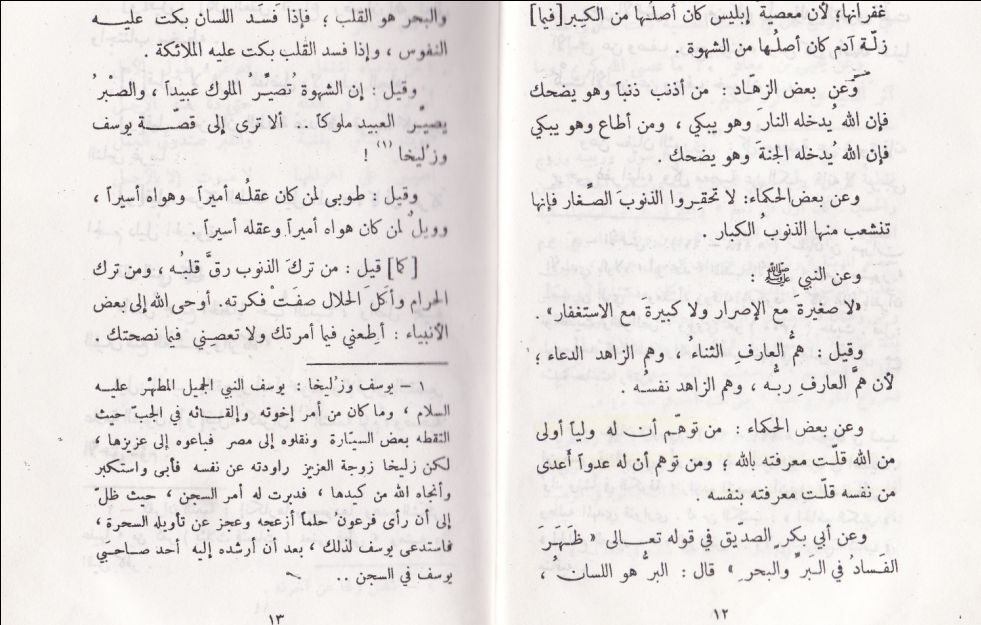 غفرانها؛ لأن معصية إبليس كان أصلُها من الكِبر [فيما]
زلّة آدم كان أصلُها من الشهوة.
وعن بعض الزهّاد : من أذنب ذنباً وهو يضحك
فإن الله يُدخله النارَ وهو يبكي ، ومن أطاع وهو يبكي
فإن الله يُدخله الجنةَ وهو يضحك .
وعن بعض الحكماء: لا تحقروا الذنوب الصِّغار فإنها
تنشعب منها الذنوبُ الكبار .
وعن النبي ﷺ :
«لا صغيرةَ مع الإصرار ولا كبيرة مع الاستغفار» .
وقيل : همُّ العارفِ الثناءُ ، وهم الزاهد الدعاء ؛
لأن همَّ العارفِ ربُّه ، وهم الزاهد نفسُه .
وعن بعض الحكماء : من توهّم أن له ولياً أولى
من الله قلّت معرفته بالله ؛ ومن توهم أن له عدواً أعدى
من نفسه قلّت معرفته بنفسه
وعن أبي بكرٍ الصدّيق في قوله تعالى « ظَهَرَ
الفَسادُ في البَرِّ والبحرِ » قال : البرُّ هو اللسانُ ،
١٢
والبحر هو القلب ؛ فإذا فَسَد اللسان بكت عليه
النفوس ، وإذا فسد القلب بكت عليه الملائكة .
وقيل : إن الشهوة تُصيِّرُ الملوك عبيداً ، والصبْرُ
يصيِّر العبيد ملوكاً .. ألا ترى إلى قصّة يوسف
وزُليخا (١) !
وقيل : طوبى لمن كان عقلُه أميراً وهواه أسيراً ،
وويلٌ لمن كان هواه أميراً وعقله أسيراً .
[كما] قيل : من تركَ الذنوب رقَّ قلبُه ، ومن ترك
الحرام وأكَلَ الحلال صفَتْ فكرته . أوحى الله إلى بعض
الأنبياء : أطعني فيما أمرتك ولا تعصِني فيما نصحتك .
١ – يوسف وزُليخا : يوسف النبي الجميل المطهّر عليه
السلام ، وما كان من أمر إخوته وإلقائه في الجبّ حيث
التقطه بعض السيّارة ونقلوه إلى مصر فباعوه إلى عزيزها ،
لكن زليخا زوجة العزيز راودته عن نفسه فأبى واستكبر
وأنجاه الله من كيدها ، فدبرت له أمر السجن ، حيث ظلّ
إلى أن رأى فرعون حلماً أزعجه وعجز عن تأويله السحرة ،
فاستدعى يوسف لذلك ، بعد أن أرشده إليه أحد صاحبَي
يوسف في السجن ..
١٣